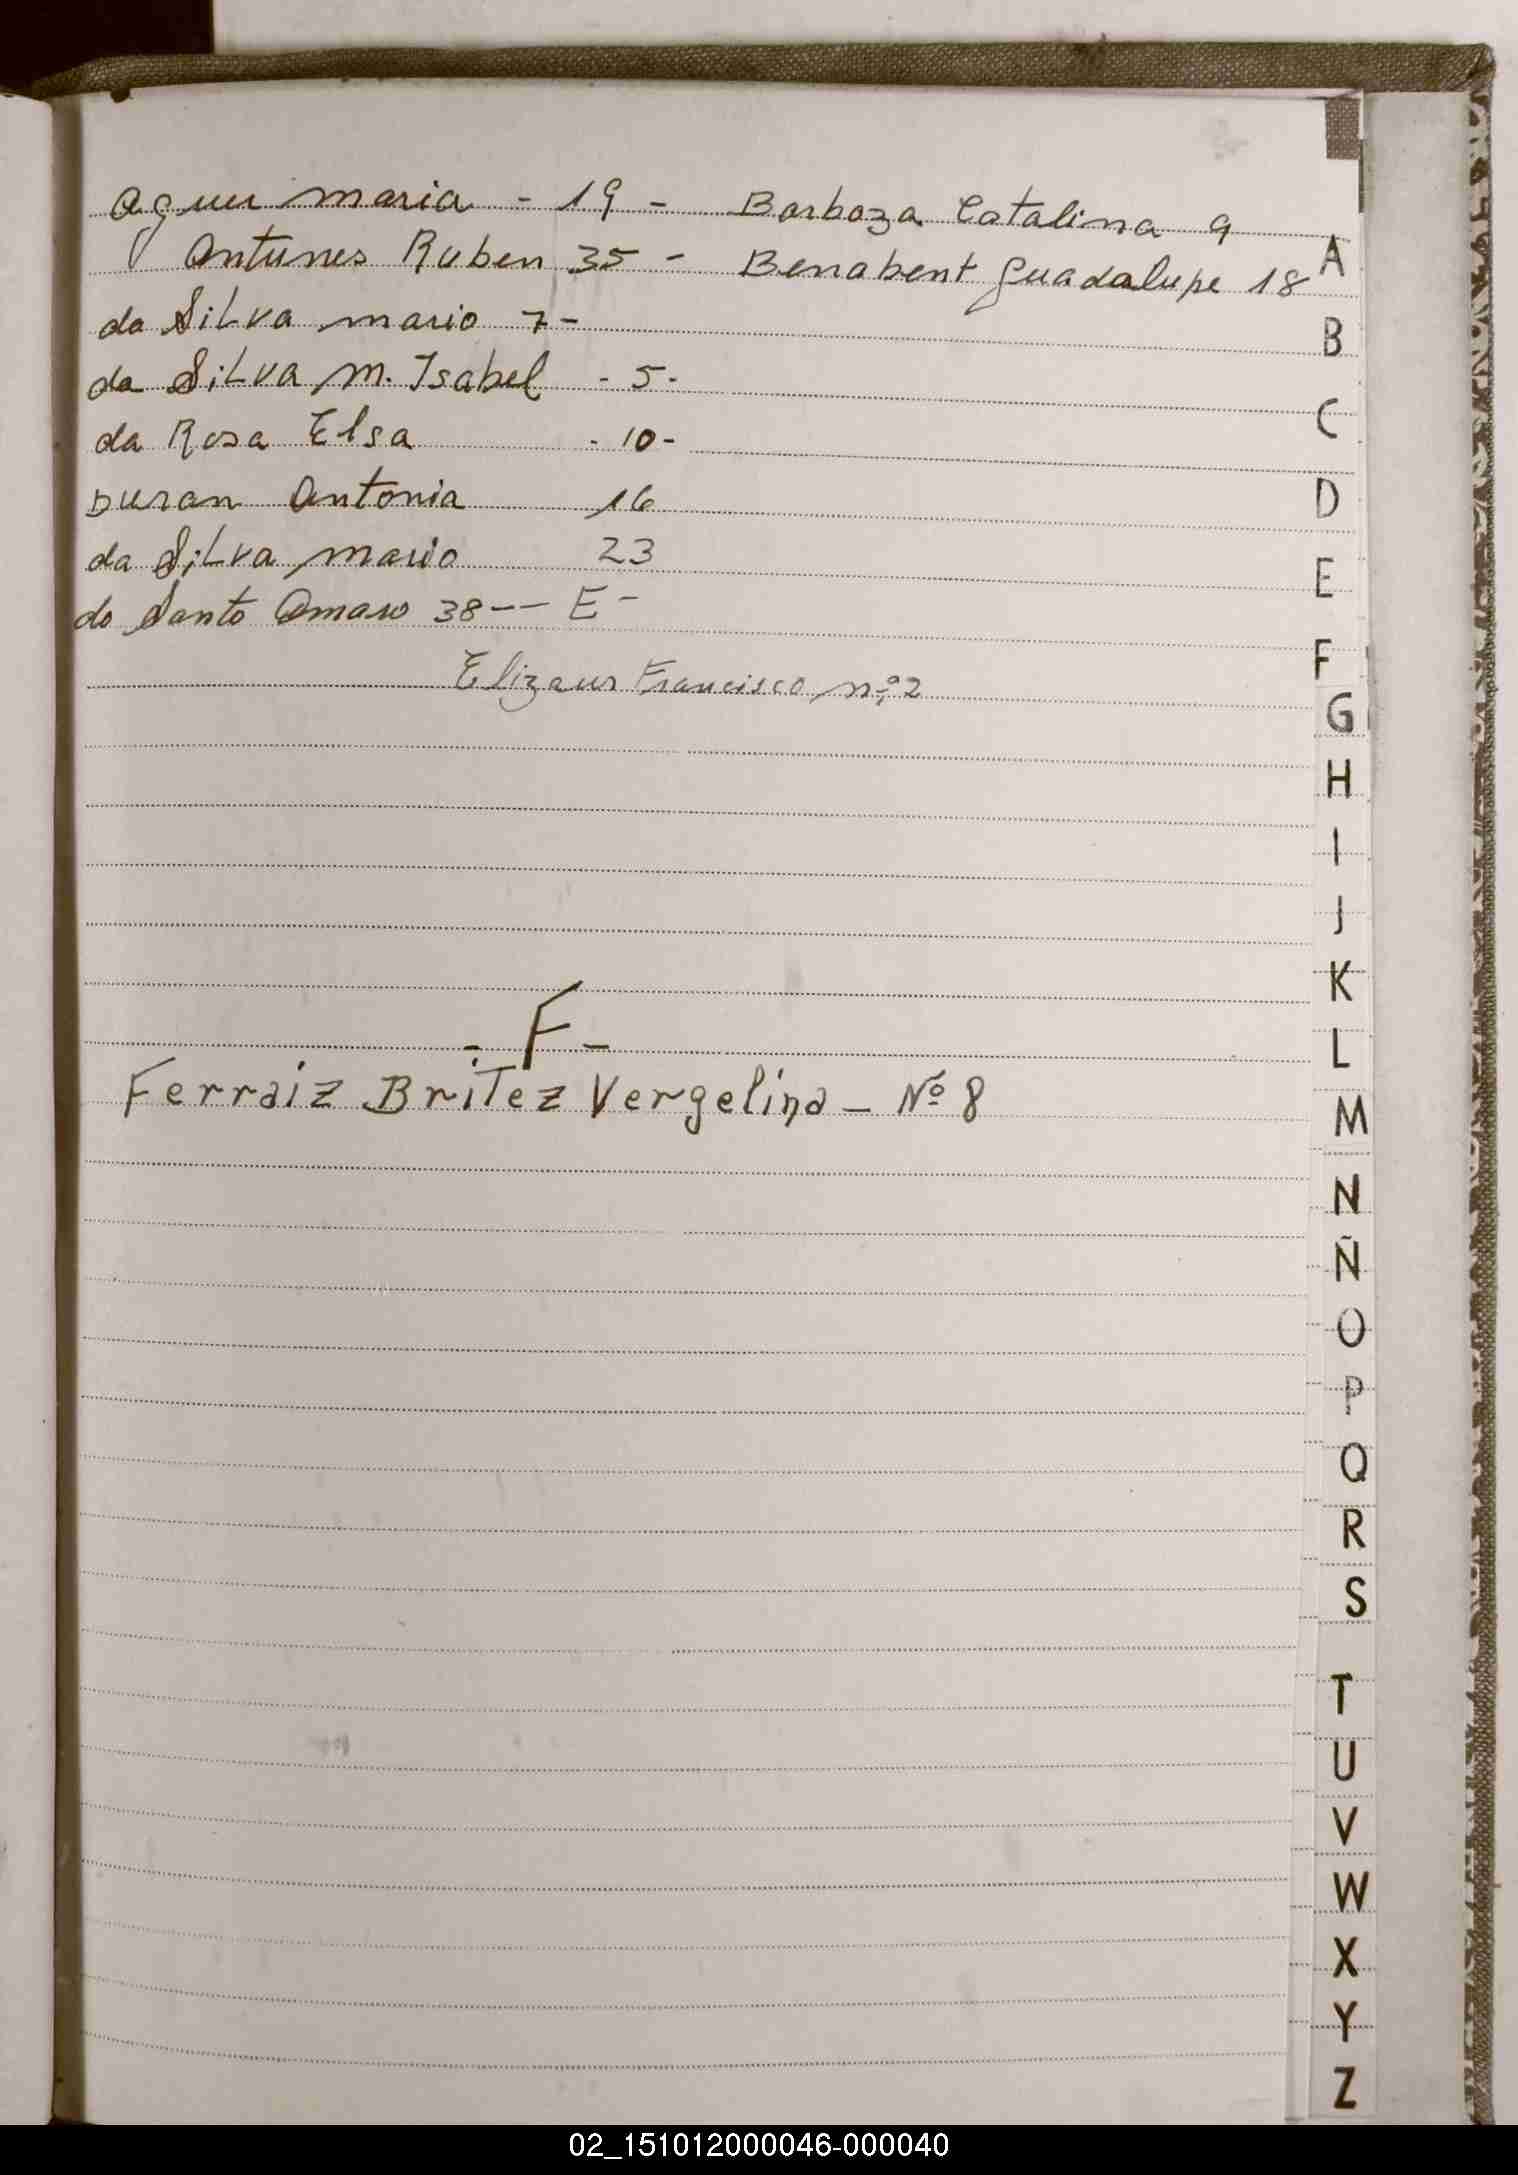 Aguer maria - 19 - Barboza Catalina 9
Antunes Ruben 35 - Benabent Guadalupe 18
da Silva mario 7-
da Silva m. Isabel - 5-
da Rosa Elsa - 10-
Duran Antonia 16
da Silva mario 23
do Santo Amaro 38-- E-
Francisco nº 2
- F -
Ferraiz BriTez Vergelina - Nº 8
A
B
C
D
E
F
G
H
I
J
K
L
M
N
Ñ
O
P
Q
R
S
T
U
V
W
X
Y
Z
02_151012000046-000040